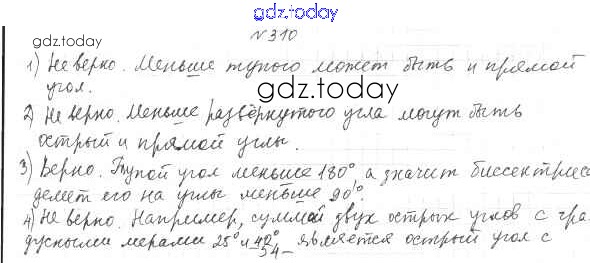 gdz.today
gdz.today
№310
1) Не верно. Меньше тупого может быть и прямой
угол.
gdz.today
2) Не верно. Меньше развёрнутого угла могут быть
острый и прямой углы.
3) Верно. Тупой угол меньше 180°, а значит биссектриса
делит его на углы меньше 90°
4) Не верно. Например, суммой двух острых углов с гра-
дусными мерами 25° и 40° является острый угол с
54